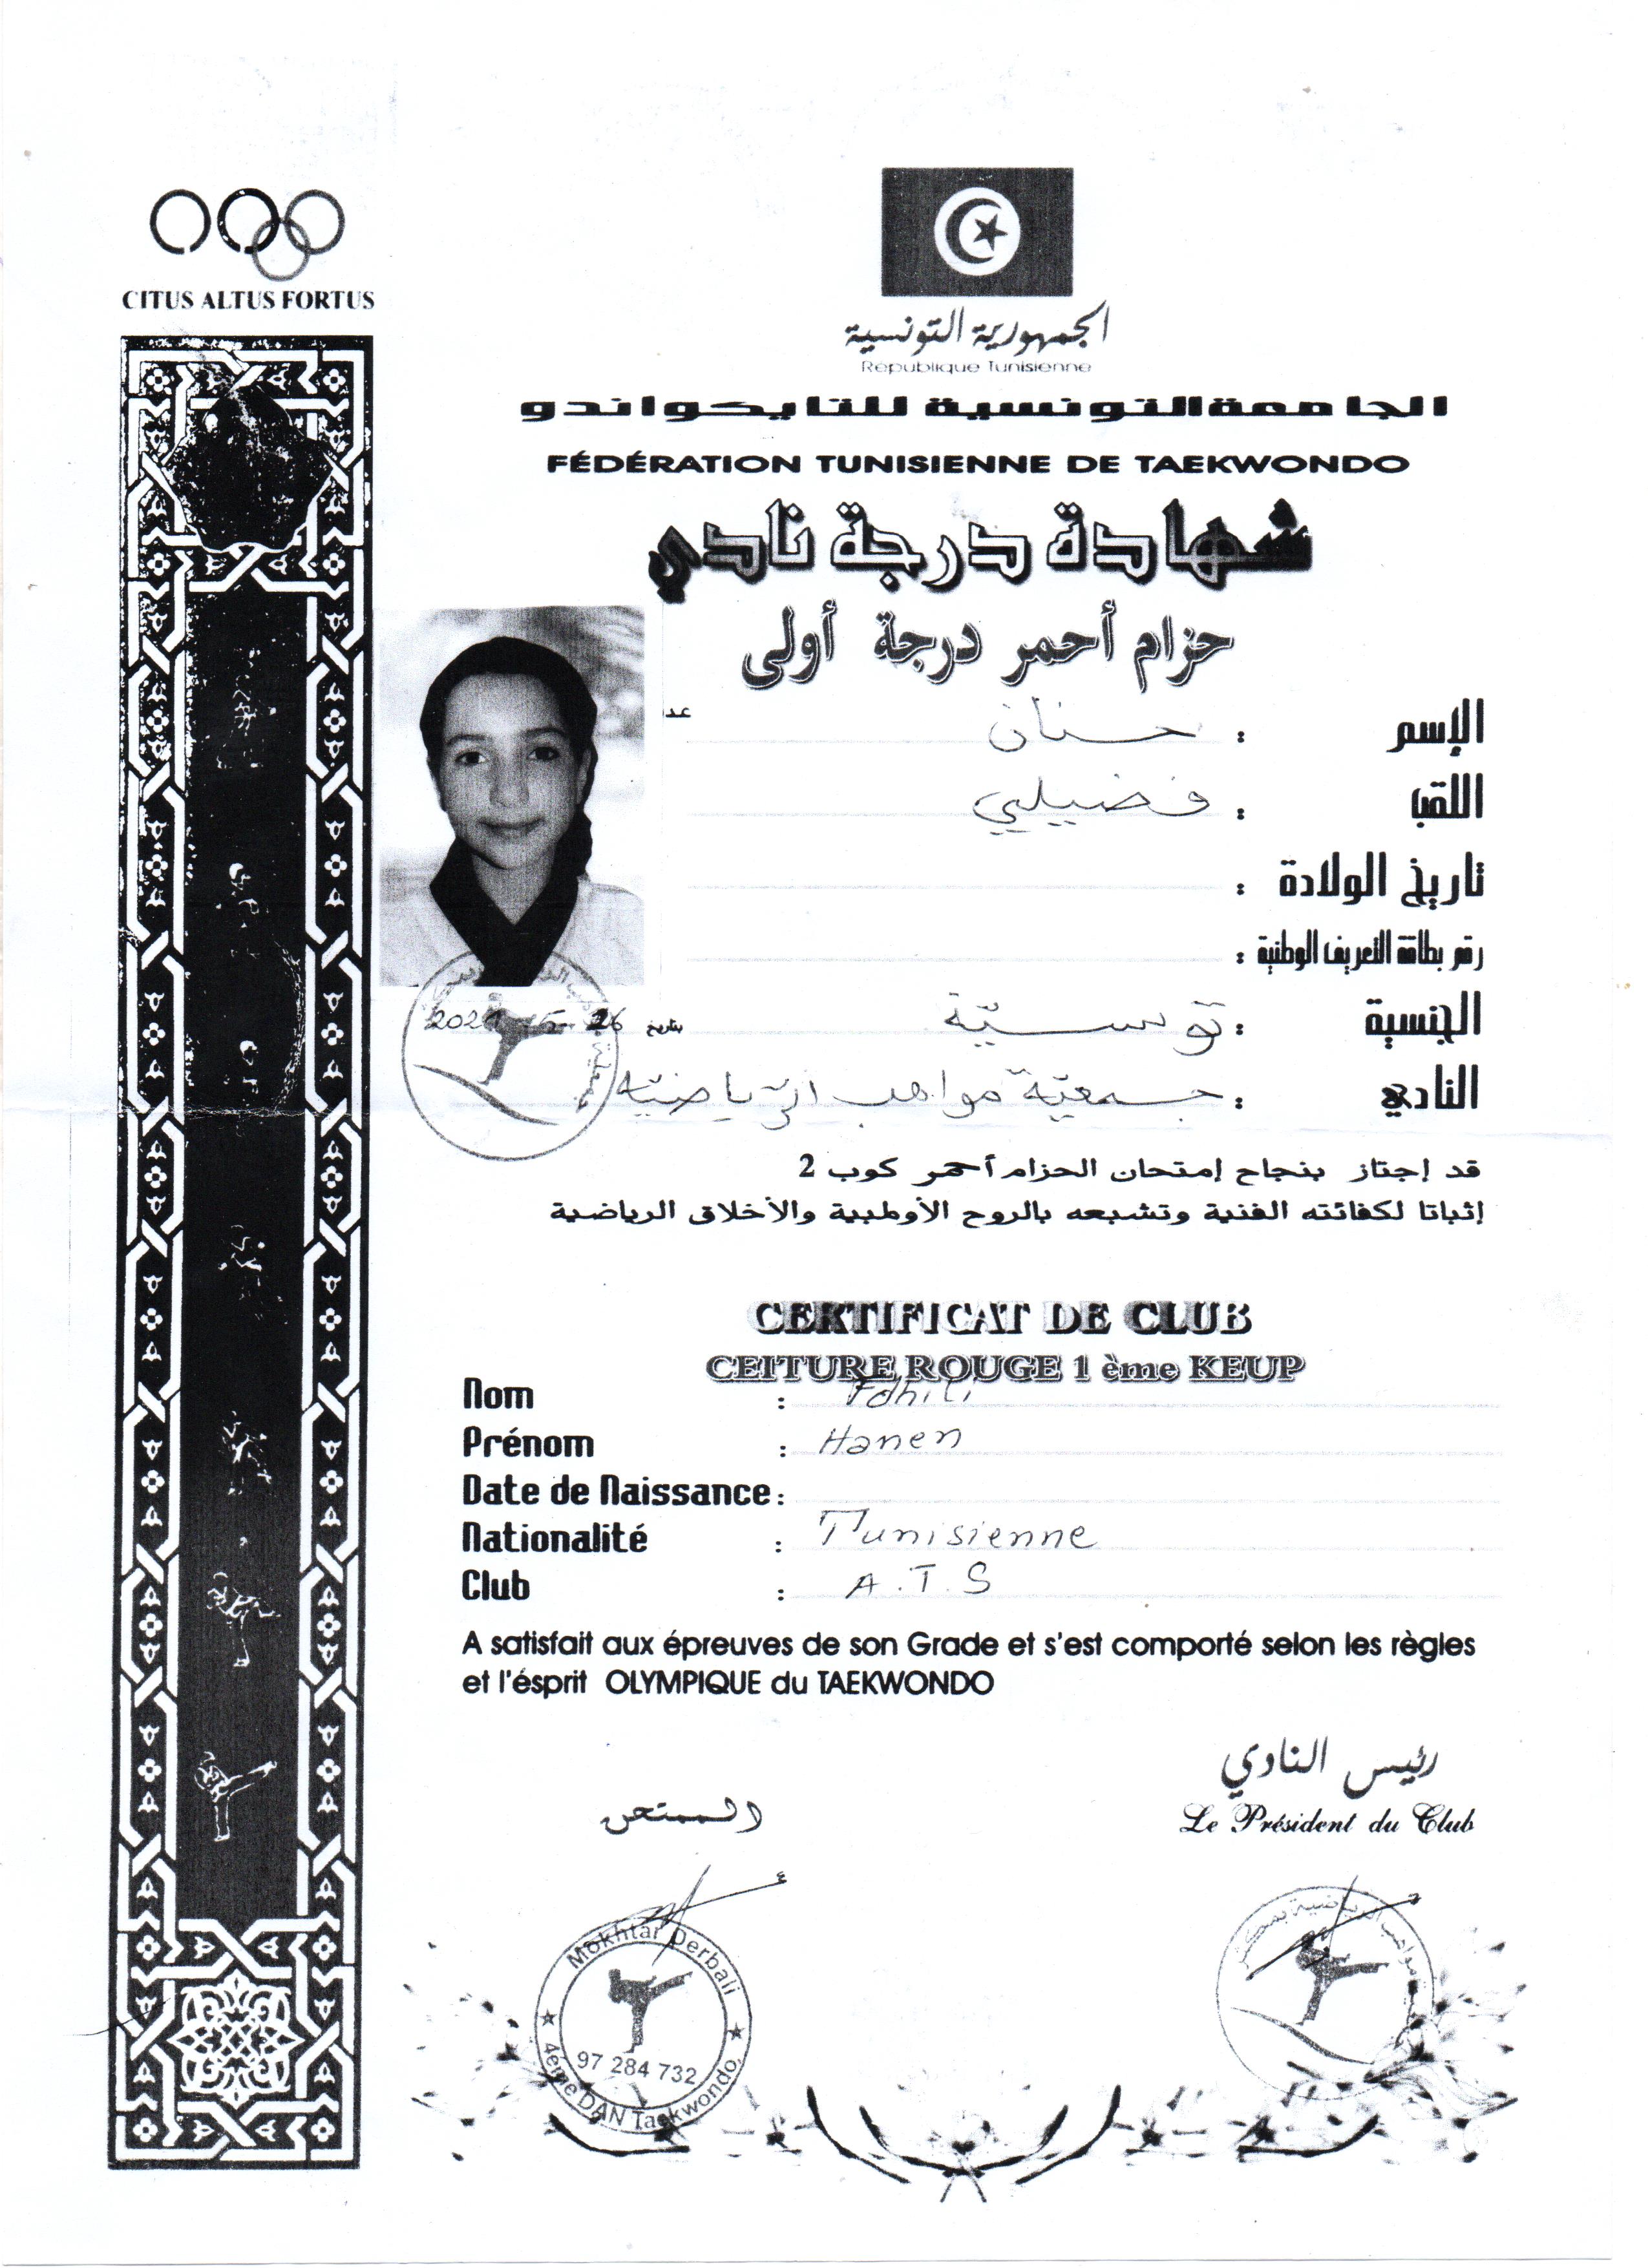 CITUS ALTUS FORTUS
الجمهورية التونسية
Republique Tunisienne
الجامعة التونسية للتايكواندو
FÉDÉRATION TUNISIENNE DE TAEKWONDO
شهادة درجة نادي
حزام أحمر درجة أولى
الإسم : حنان
اللقب : فضيلي
تاريخ الولادة :
رقم بطاقة التعريف الوطنية :
الجنسية : تونسيّة
بتاريخ 26 - 5 - 2021
النادي : جمعيّة مواهب الرّياضيّة
قد إجتاز بنجاح إمتحان الحزام أحمر كوب 2
إثباتا لكفائته الفنية وتشبعه بالروح الأولمبية والأخلاق الرياضية
CERTIFICAT DE CLUB
CEITURE ROUGE 1 ème KEUP
Nom : Fdhili
Prénom : Hanen
Date de Naissance :
Nationalité : Tunisienne
Club : A.T.S
A satisfait aux épreuves de son Grade et s'est comporté selon les règles
et l'ésprit OLYMPIQUE du TAEKWONDO
رئيس النادي
Le Président du Club
الممتحن
Mokhtar Derbali
97 284 732
4ème DAN Taekwondo